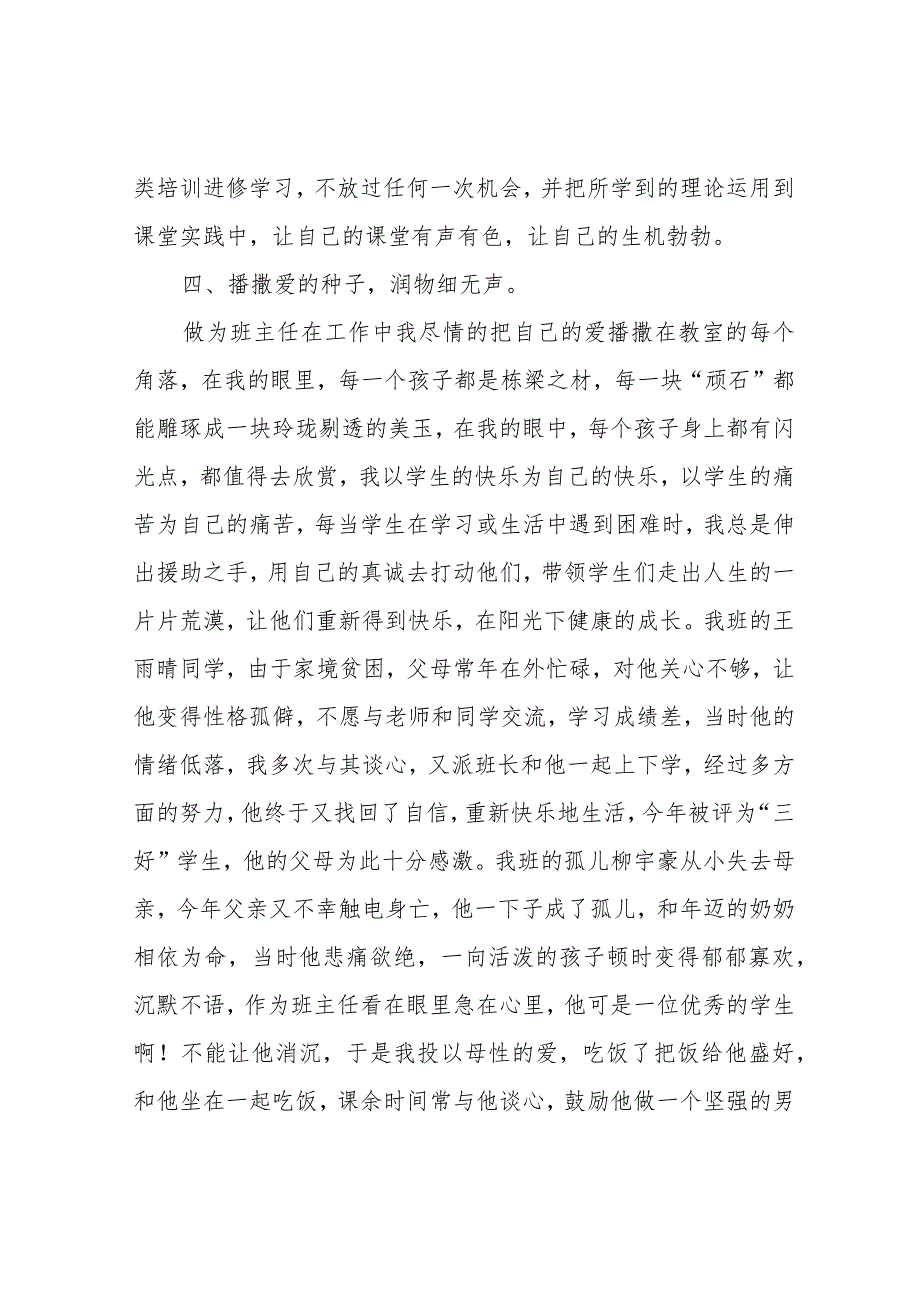 类培训进修学习，不放过任何一次机会，并把所学到的理论运用到
课堂实践中，让自己的课堂有声有色，让自己的生机勃勃。
四、播撒爱的种子，润物细无声。
做为班主任在工作中我尽情的把自己的爱播撒在教室的每个
角落，在我的眼里，每一个孩子都是栋梁之材，每一块“顽石”都
能雕琢成一块玲珑剔透的美玉，在我的眼中，每个孩子身上都有闪
光点，都值得去欣赏，我以学生的快乐为自己的快乐，以学生的痛
苦为自己的痛苦，每当学生在学习或生活中遇到困难时，我总是伸
出援助之手，用自己的真诚去打动他们，带领学生们走出人生的一
片片荒漠，让他们重新得到快乐，在阳光下健康的成长。我班的王
雨晴同学，由于家境贫困，父母常年在外忙碌，对他关心不够，让
他变得性格孤僻，不愿与老师和同学交流，学习成绩差，当时他的
情绪低落，我多次与其谈心，又派班长和他一起上下学，经过多方
面的努力，他终于又找回了自信，重新快乐地生活，今年被评为“三
好”学生，他的父母为此十分感激。我班的孤儿柳宇豪从小失去母
亲，今年父亲又不幸触电身亡，他一下子成了孤儿，和年迈的奶奶
相依为命，当时他悲痛欲绝，一向活泼的孩子顿时变得郁郁寡欢，
沉默不语，作为班主任看在眼里急在心里，他可是一位优秀的学生
啊！不能让他消沉，于是我投以母性的爱，吃饭了把饭给他盛好，
和他坐在一起吃饭，课余时间常与他谈心，鼓励他做一个坚强的男